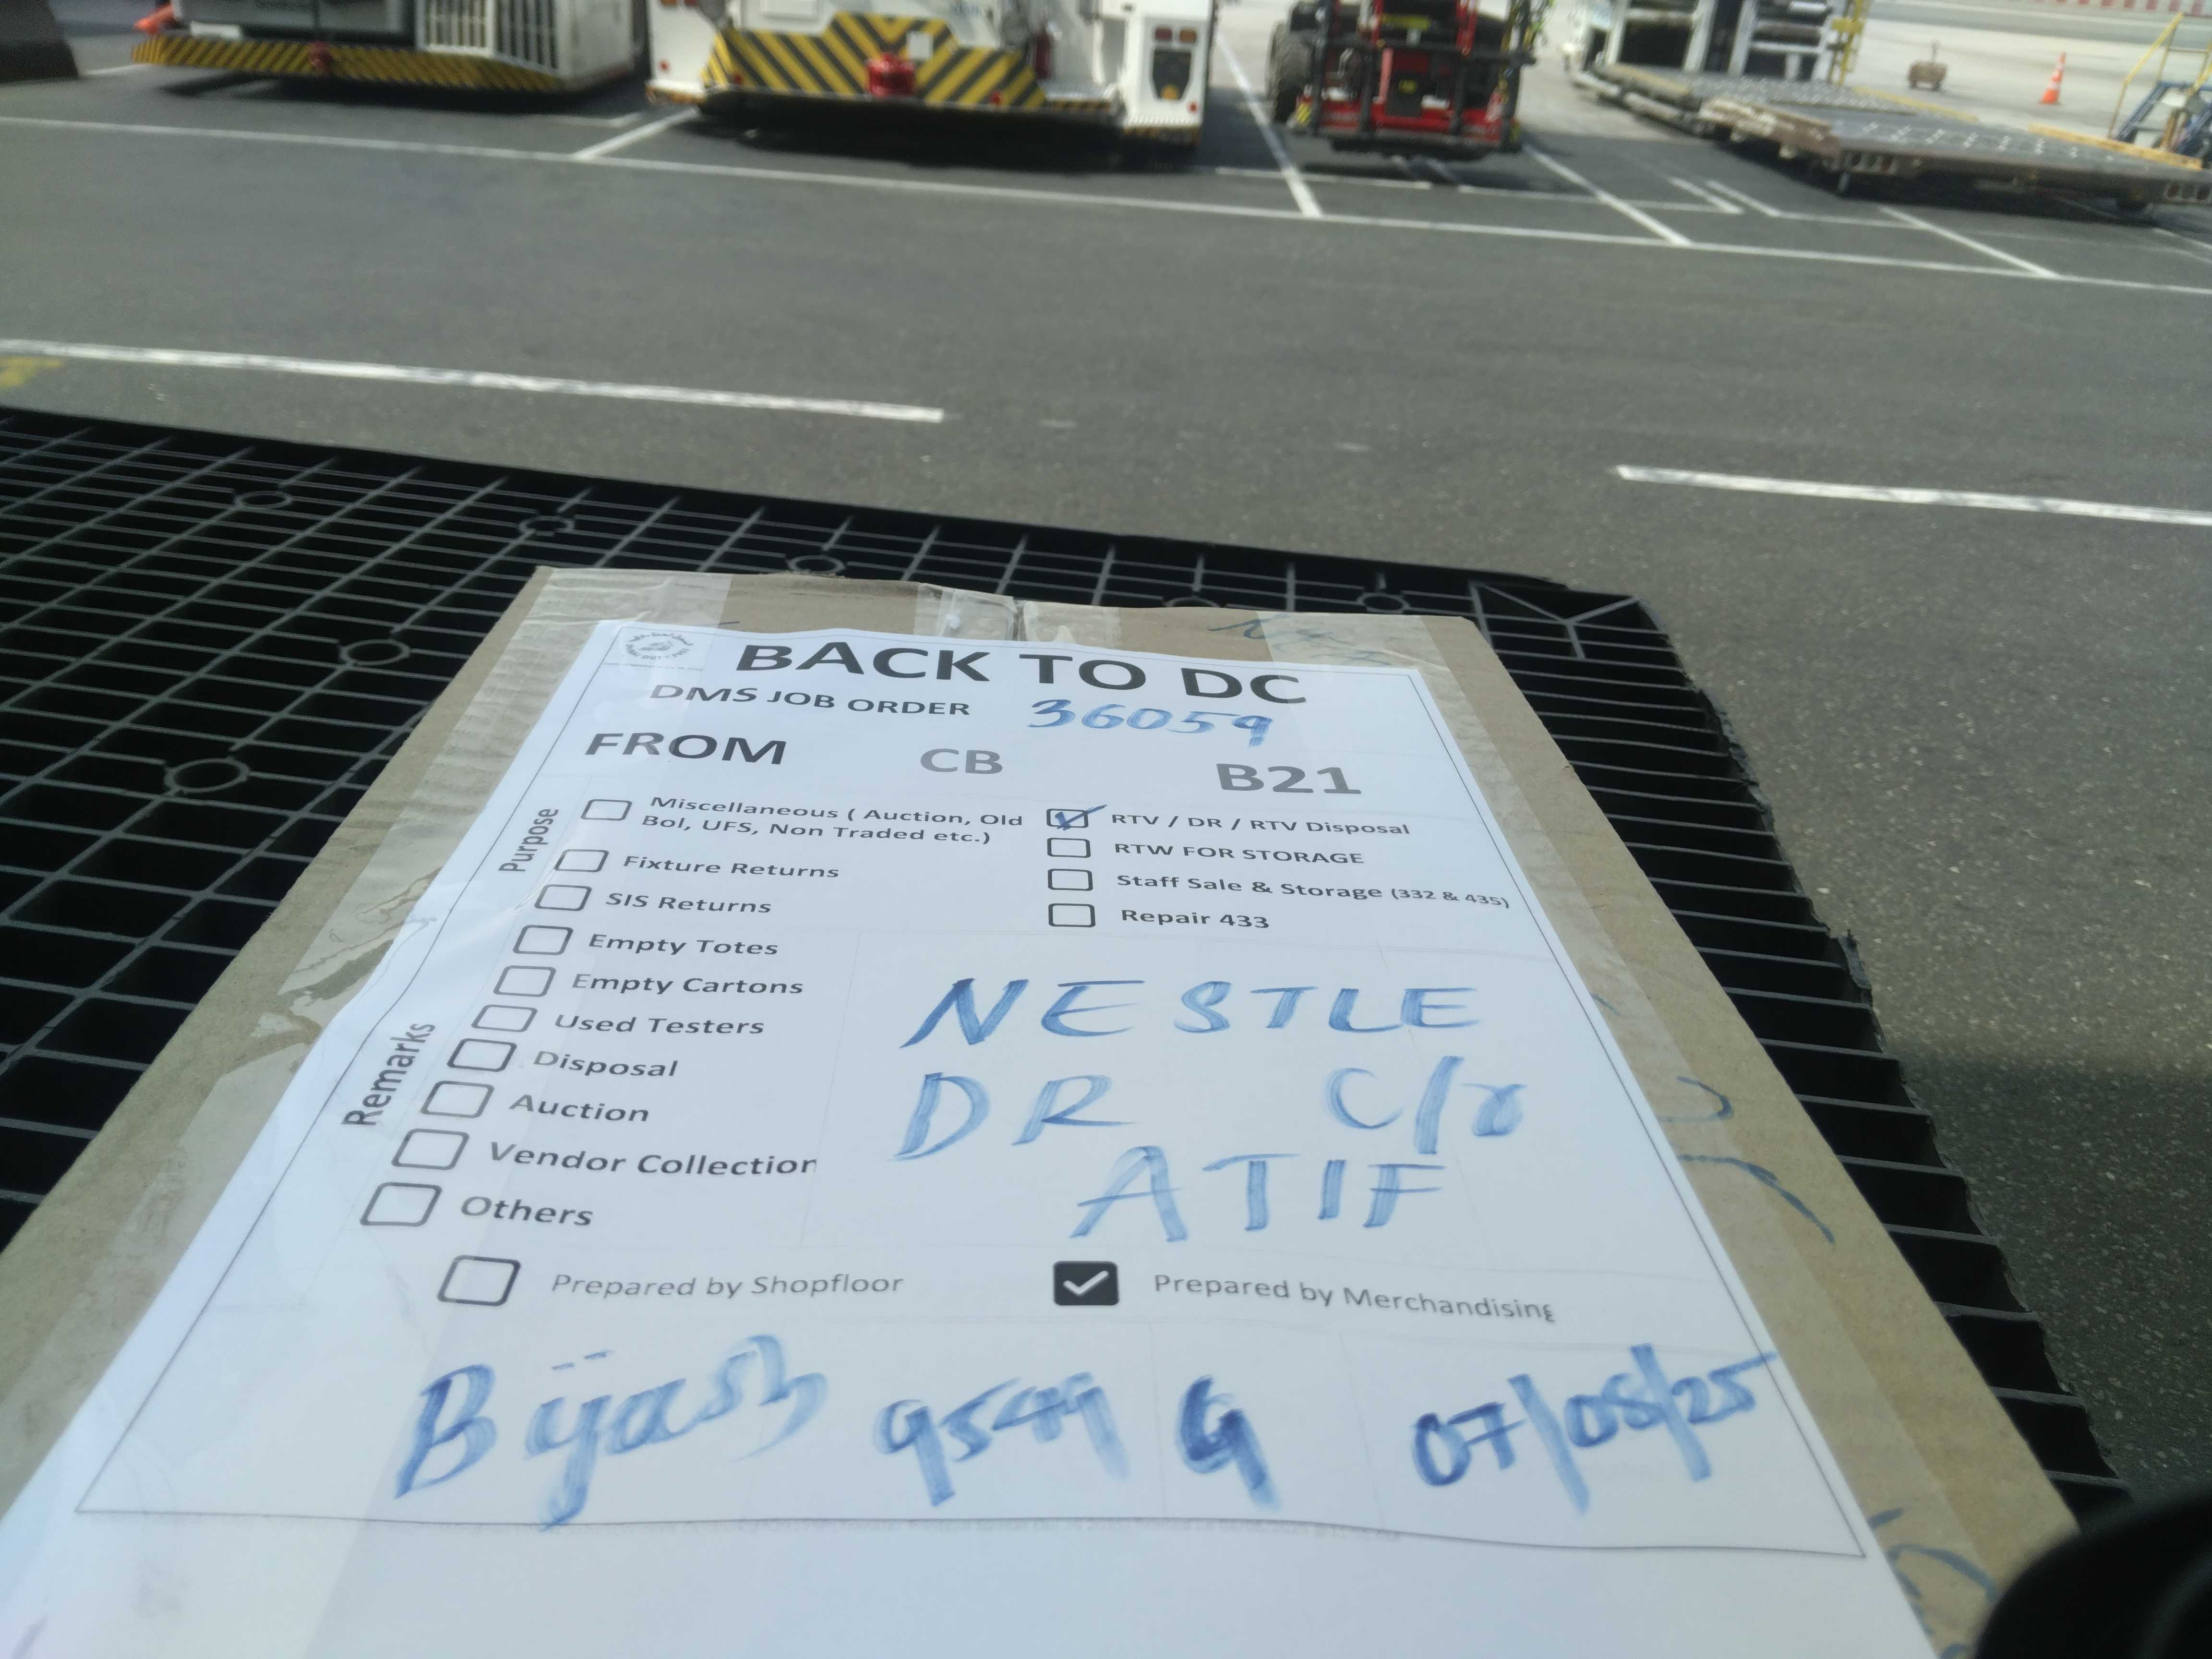 BACK TO DC
DMS JOB ORDER 36059
FROM CB B21
Purpose
Miscellaneous ( Auction, Old
Bol, UFS, Non Traded etc.)
Fixture Returns
SIS Returns
RTV / DR / RTV Disposal
RTW FOR STORAGE
Staff Sale & Storage (332 & 435)
Repair 433
Remarks
Empty Totes
Empty Cartons
Used Testers
Disposal
Auction
Vendor Collection
Others
NESTLE
DR C/o
ATIF
Prepared by Shopfloor
Prepared by Merchandising
Bijash 9549 07/05/25